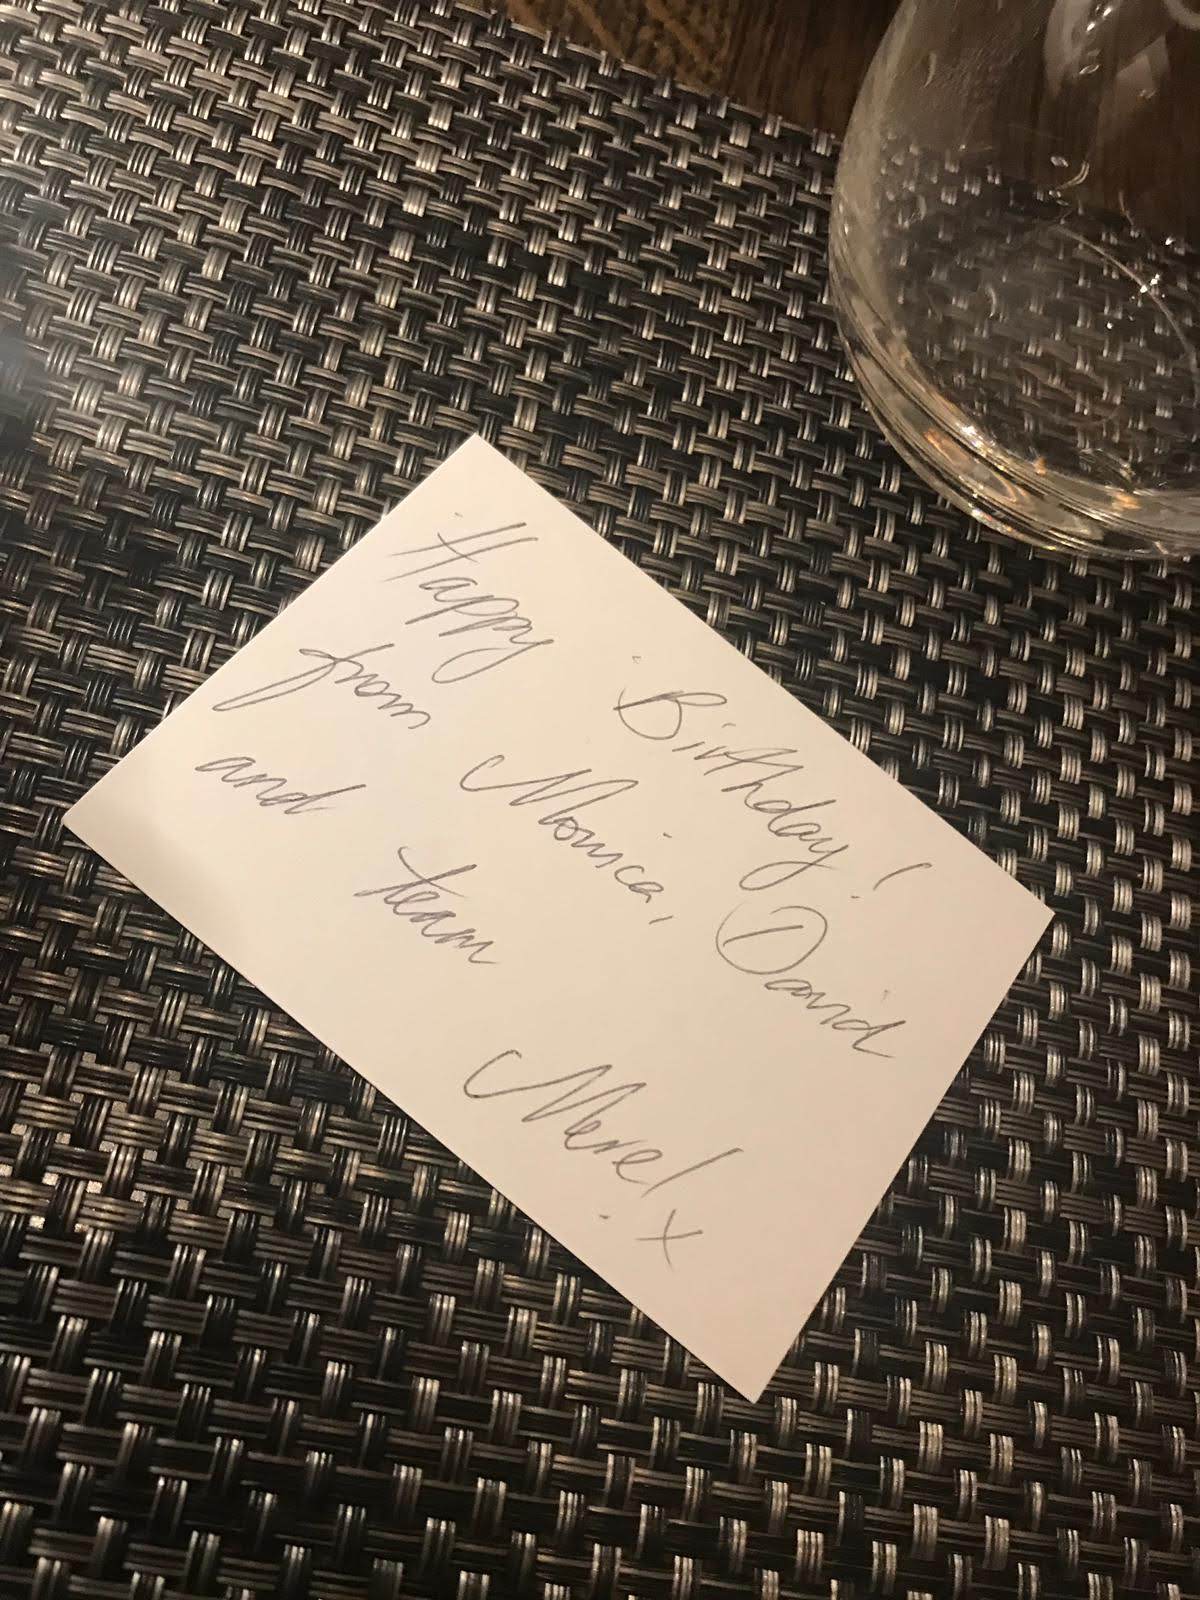 Happy Birthday!
from Monica, David
and team
Merel x